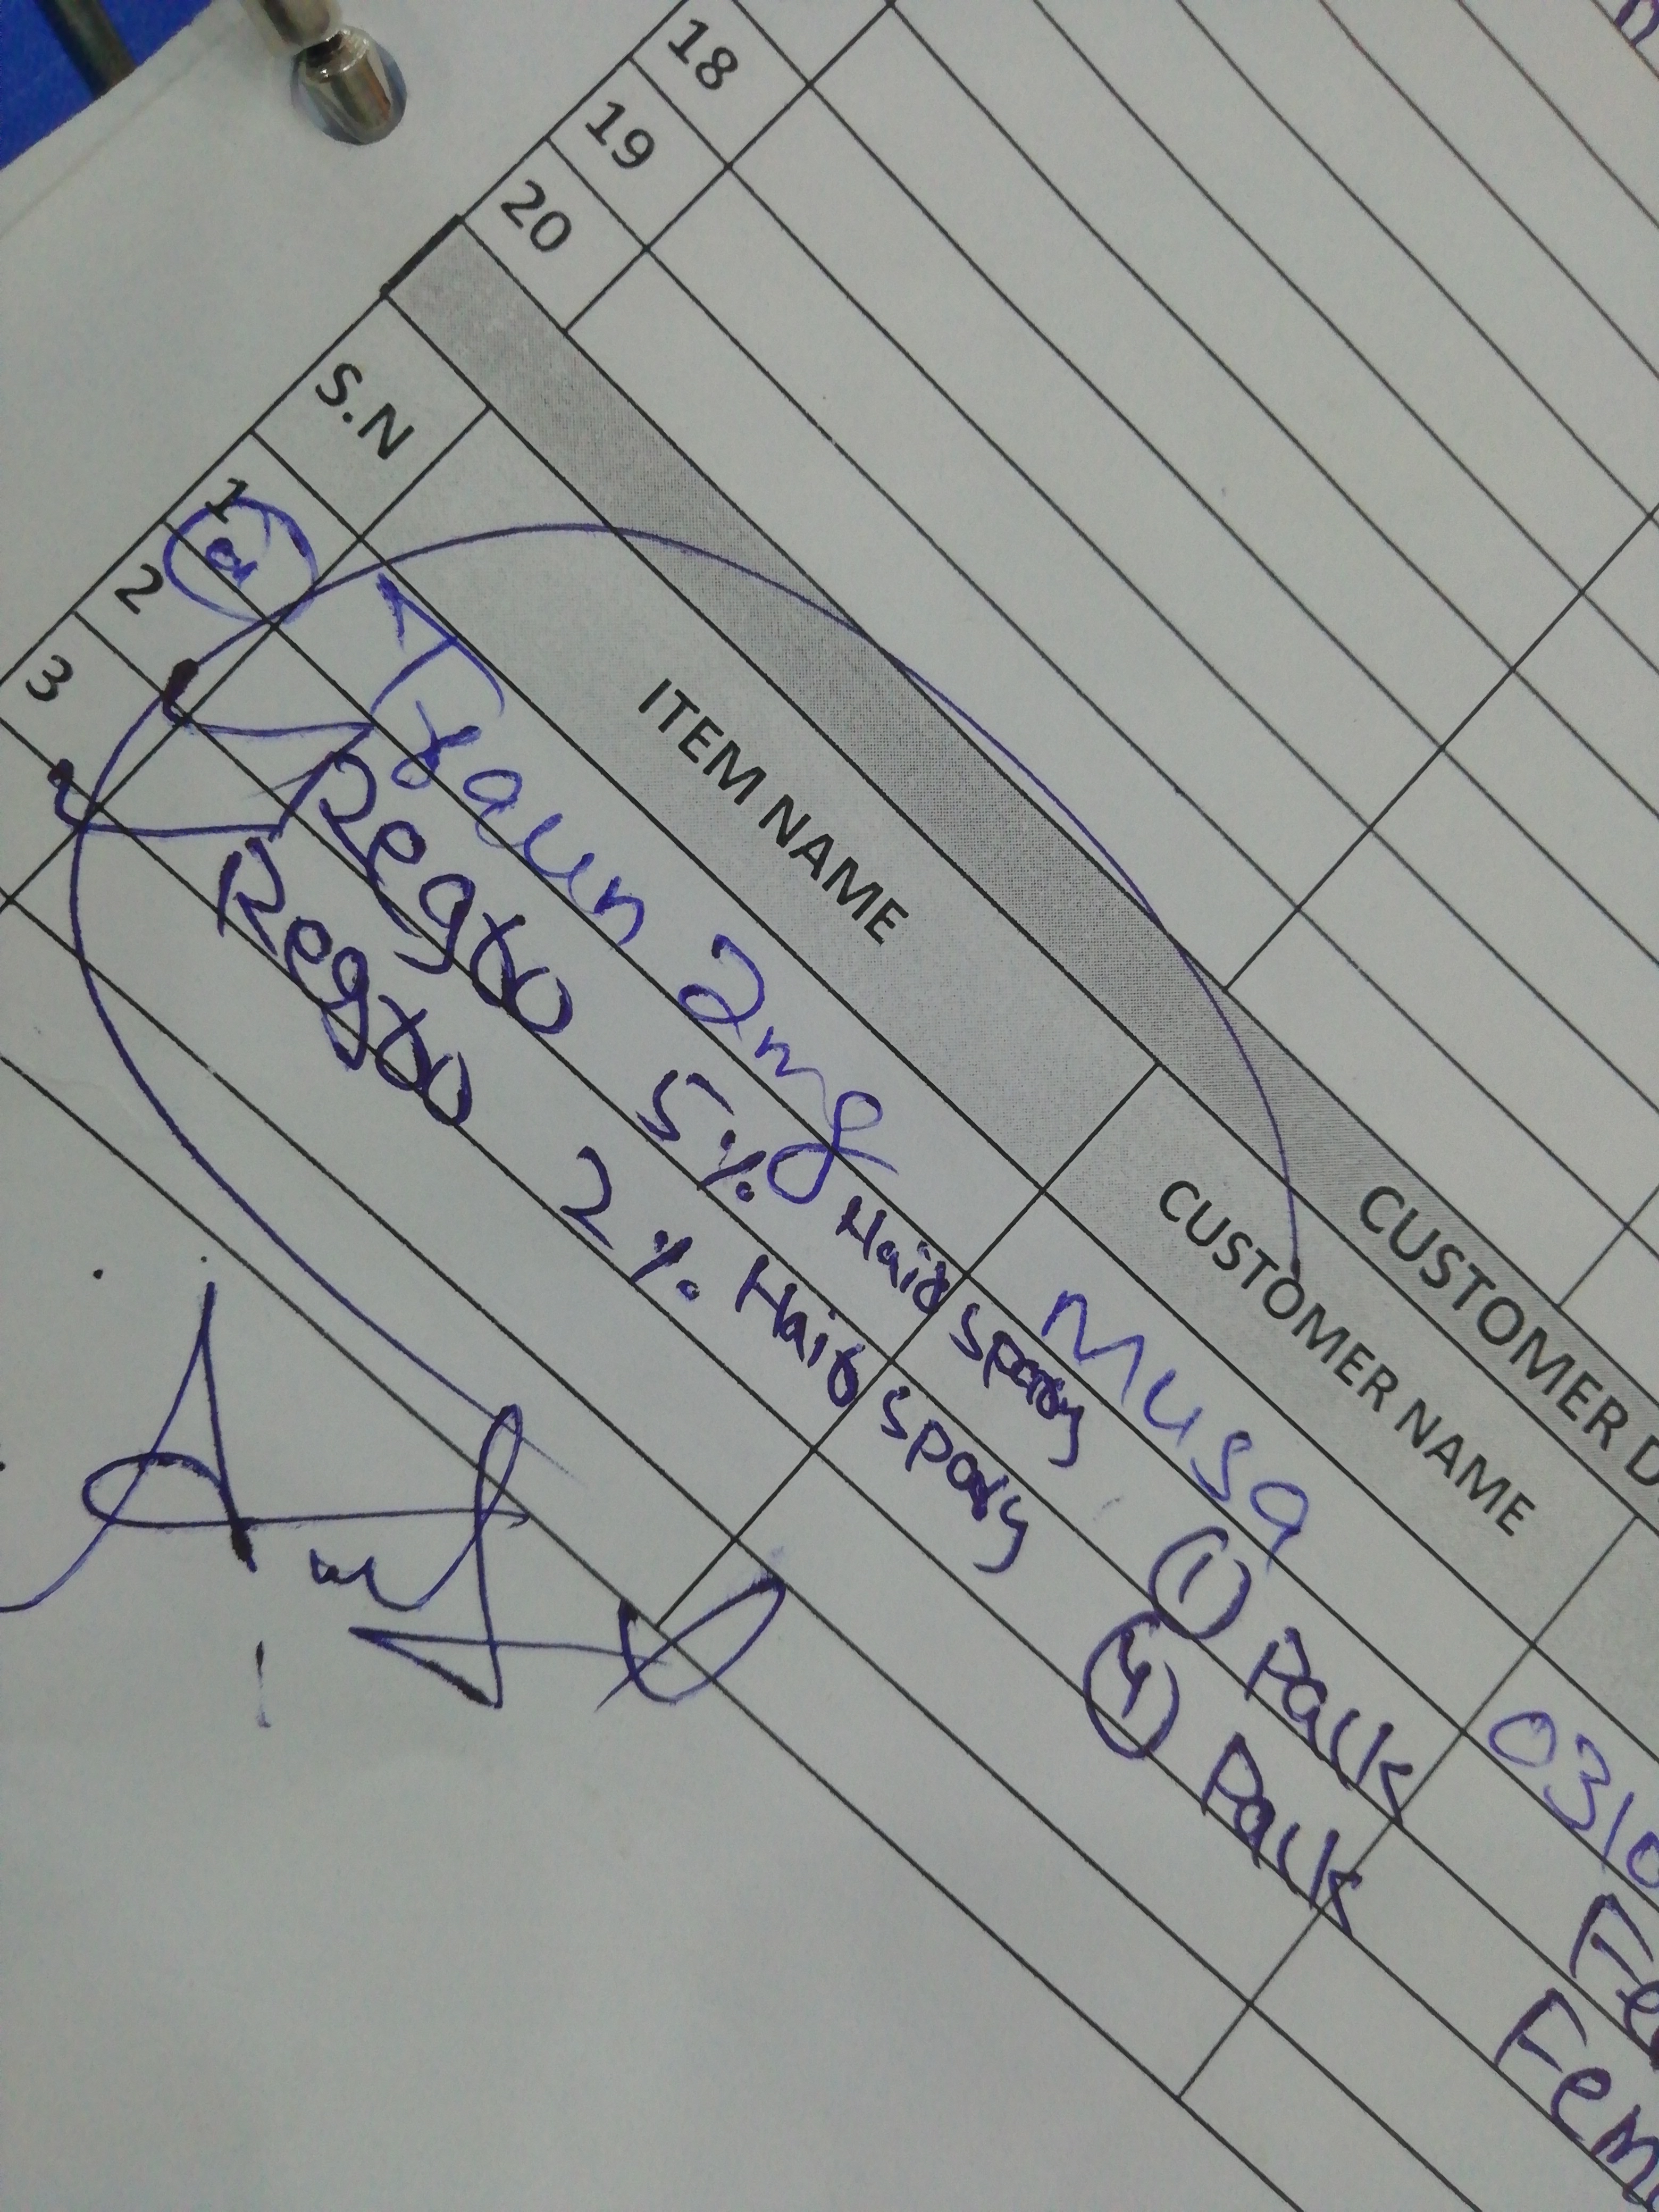 18
19
20
CUSTOMER D
S.N ITEM NAME CUSTOMER NAME
1 a Yaun 2mg Musa 0310
2 Regro 5% Hair spary ① Pack Fe
3 Regro 2% Hair spary ④ Pack Fem